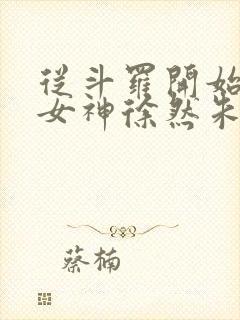 從斗羅開始
女神徐然朱
蔡楠